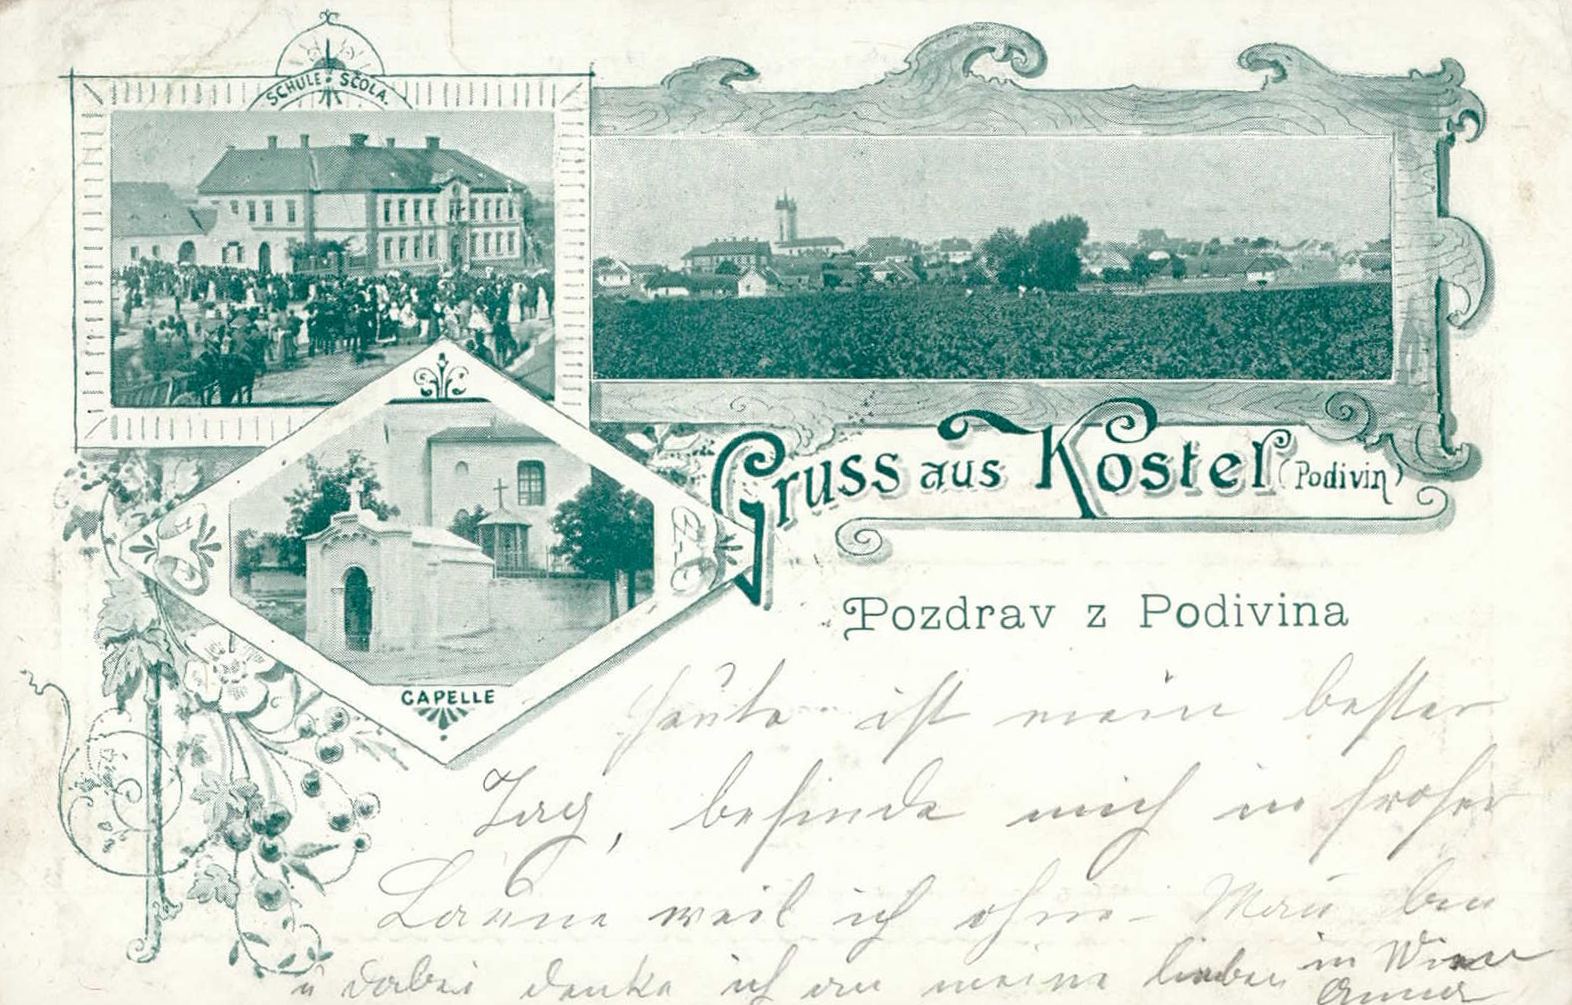 SCHULE · ŠČOLA.
Gruss aus Kostel (Podivin)
Pozdrav z Podivina
CAPELLE
Heute ist mein bester
Tag, befinde mich in froher
Laune weil ich ohne
u dabei denke ich an meine lieben in Wien
Anna